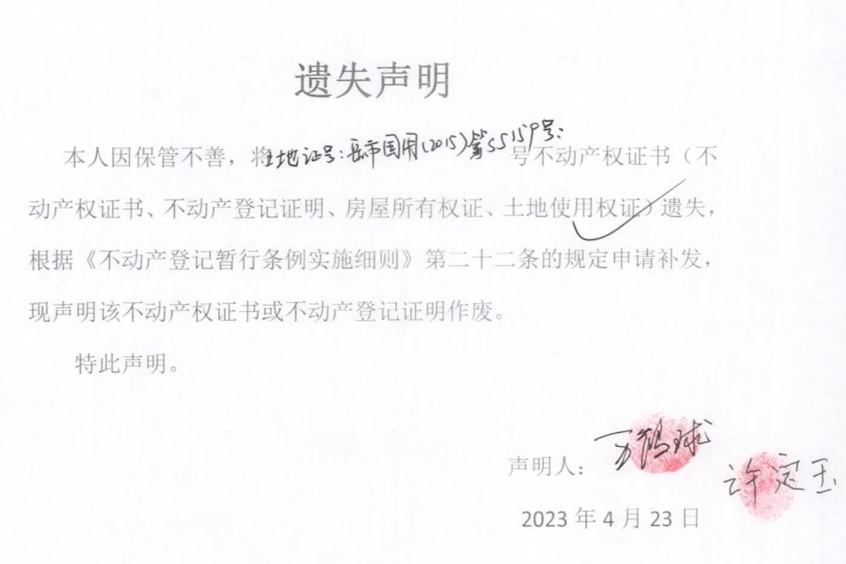 遗失声明
本人因保管不善，将土地证号：岳市国用(2015)第S5159号：号不动产权证书（不
动产权证书、不动产登记证明、房屋所有权证、土地使用权证）遗失，
根据《不动产登记暂行条例实施细则》第二十二条的规定申请补发，
现声明该不动产权证书或不动产登记证明作废。
特此声明。
声明人：万鹤球 许定玉
2023年4月23日